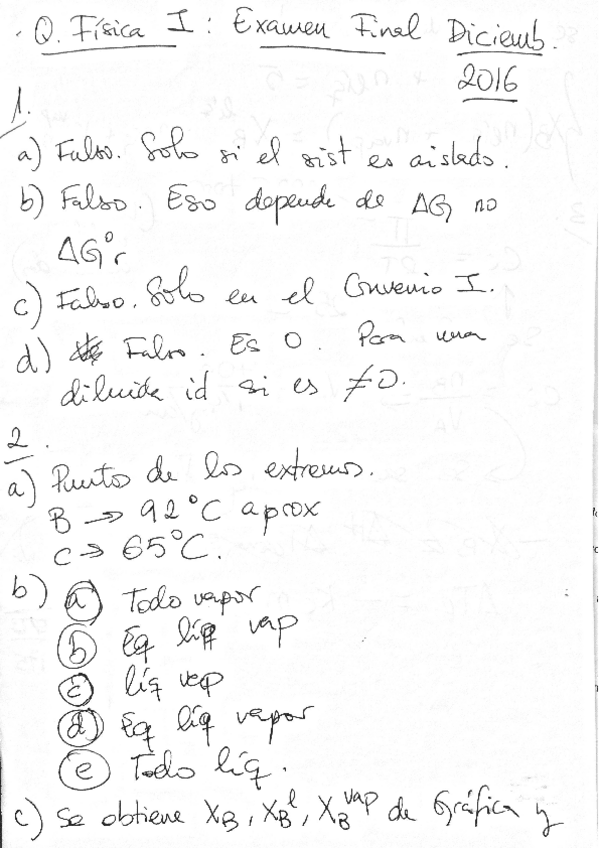 Q. Física I: Examen Final Diciemb.
2016
1.
a) Falso. Solo si el sist es aislado.
b) Falso. Eso depende de ΔG, no
ΔG°r
c) Falso. Solo en el Convenio I.
d) Falso. Es 0. Para una
diluida id si es ≠0.
2.
a) Puntos de los extremos.
B → 92°C aprox
C → 65°C.
b) a) Todo vapor
b Eq líq vap
c) líq vap
d) Eq líq vapor
e Todo líq.
c) Se obtiene XB, XB^l, XB^vap de Gráfica y